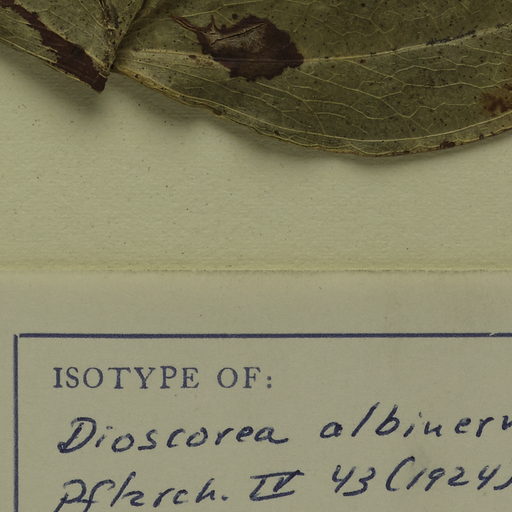 ISOTYPE OF:
Dioscorea albiner
Pflzrch. IV 43 (1924)